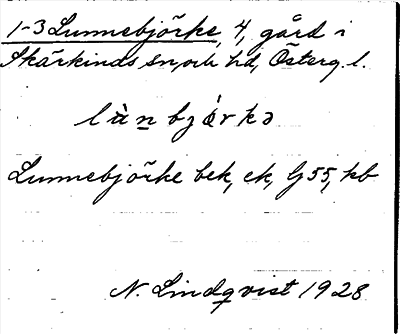 1-3 Lunnebjörke, 4, gård i
Skärkinds sn, och hd, Österg. l.
lùn bjórkə
Lunnebjörke bek, ek, Gj 55, kb
N. Lindqvist 1928